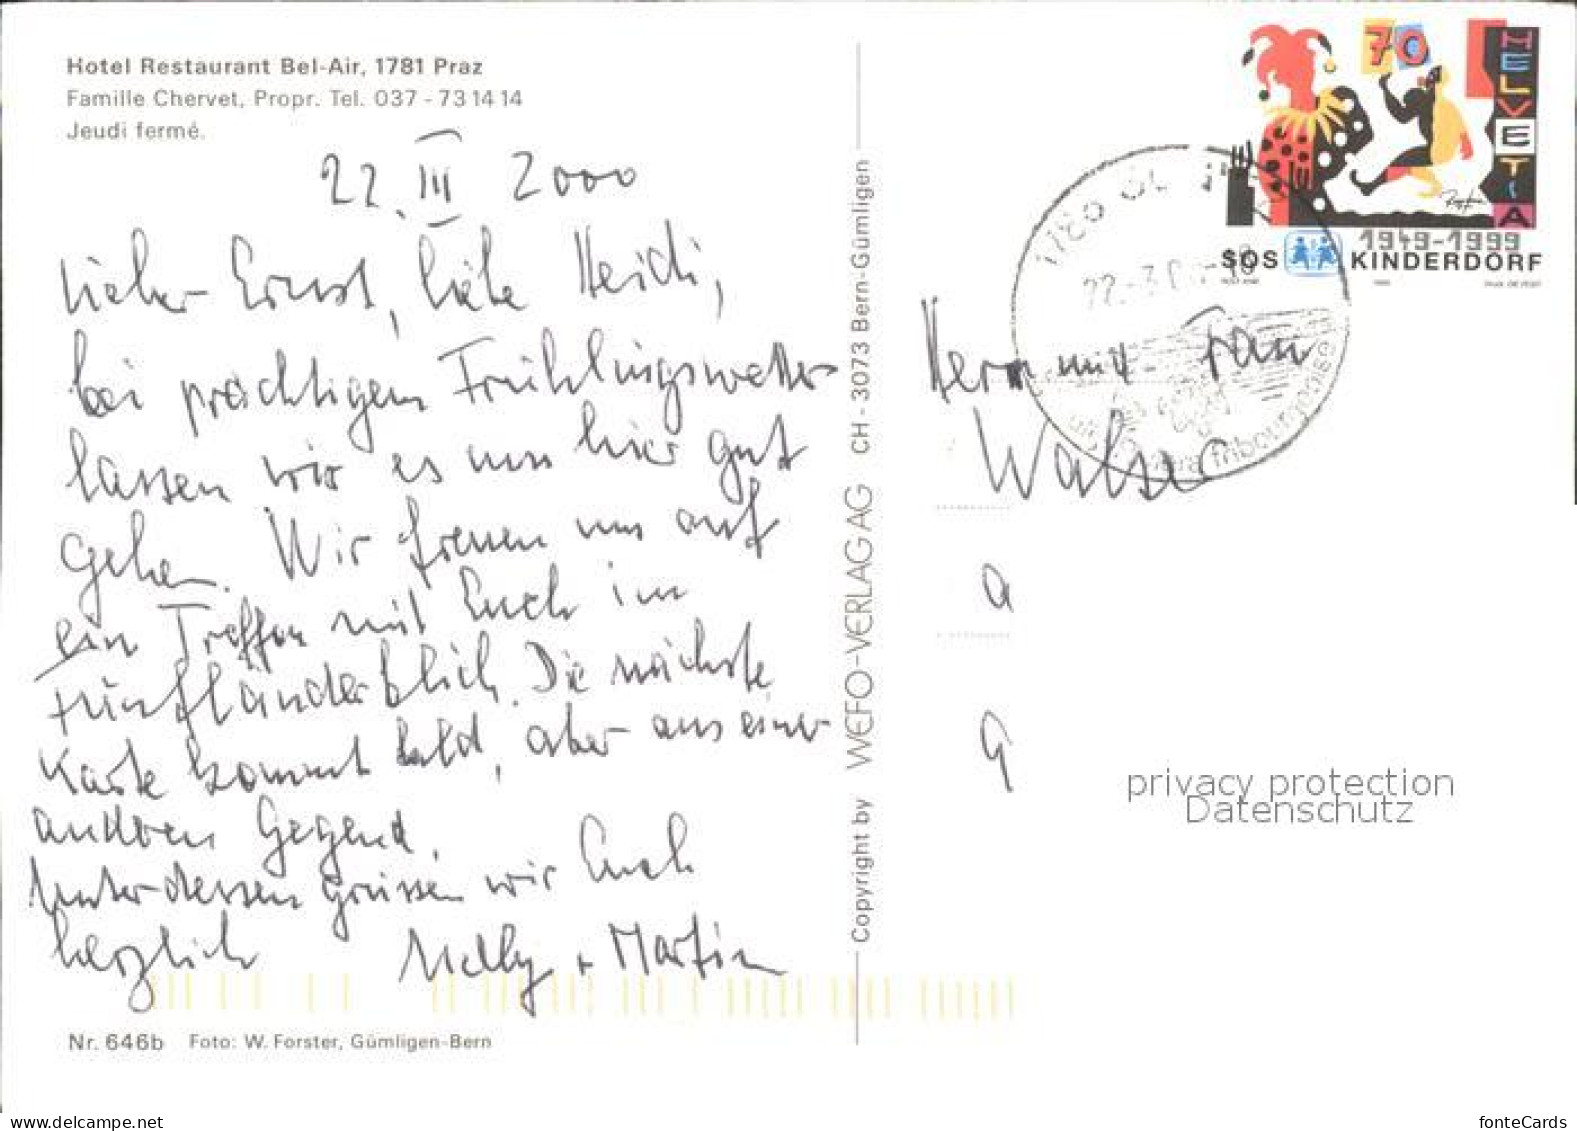 Hotel Restaurant Bel-Air, 1781 Praz
Famille Chervet, Propr. Tel. 037 - 73 14 14
Jeudi fermé.
22. III 2000
Lieber Ernst, liebe Heidi,
bei prächtigem Frühlingswetter
lassen wir es uns hier gut
gehen. Wir freuen uns auf
ein Treffen mit Euch im
Fünfländerblick. Die nächste
Karte kommt bald, aber aus einer
anderen Gegend.
Unterdessen grüssen wir Euch
herzlich Nelly + Martin
Nr. 646b Foto: W. Forster, Gümligen-Bern
Copyright by WEFO-VERLAG AG CH - 3073 Bern-Gümligen
70
HELVETIA
1949-1999
SOS KINDERDORF
22.-3.
Herr und Frau
Walser
a
9
privacy protection
Datenschutz
www.delcampe.net
fonteCards